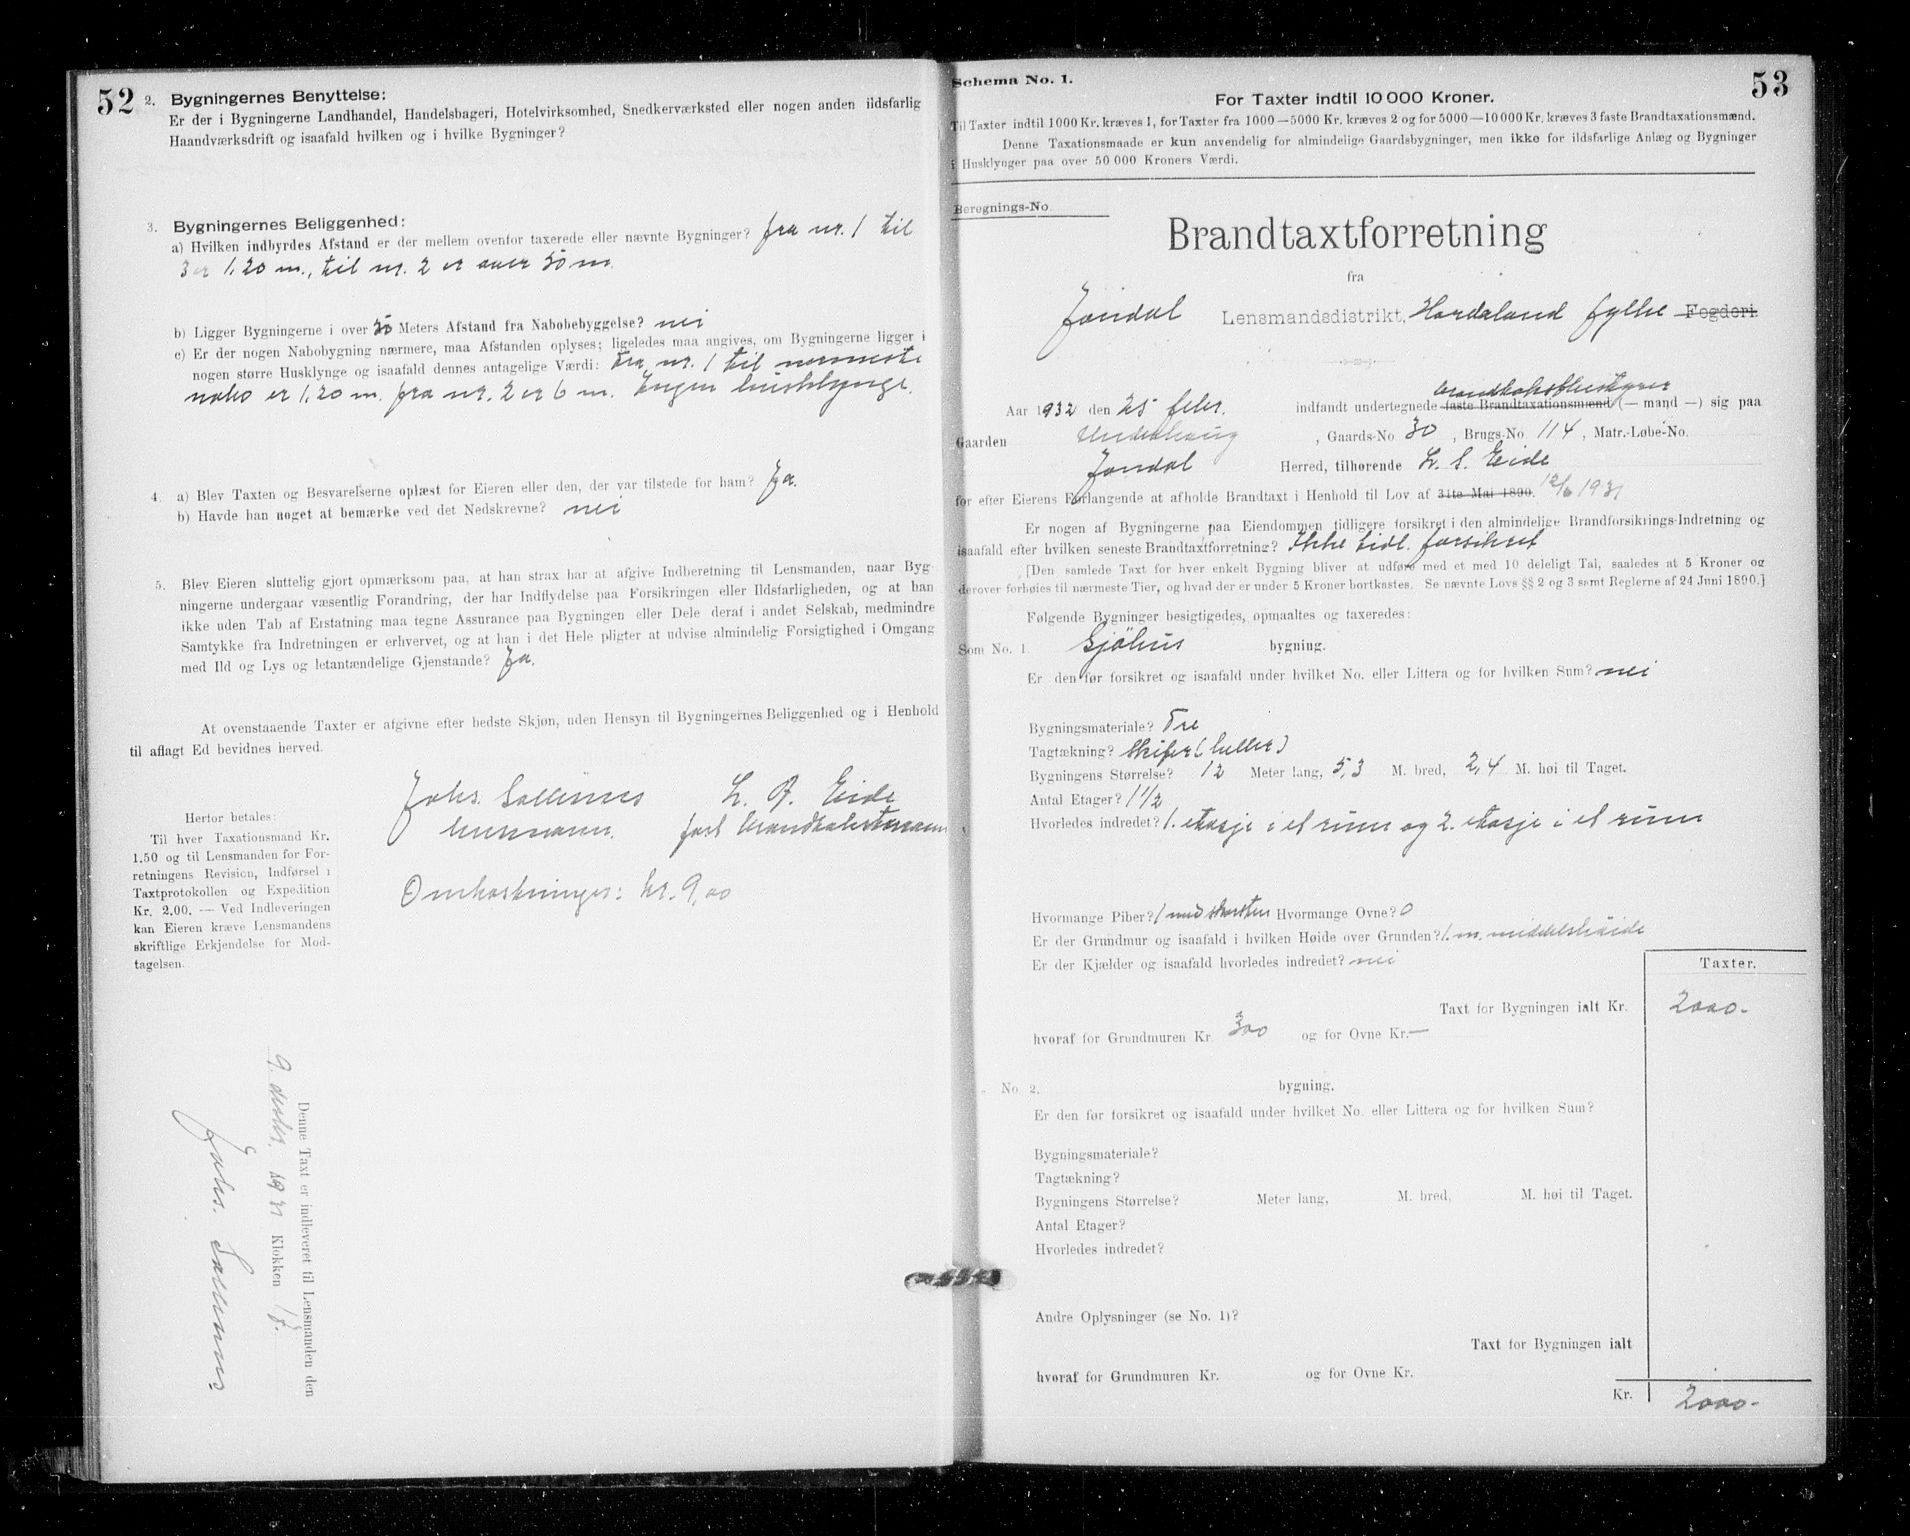 52
2. Bygningernes Benyttelse:
Er der i Bygningerne Landhandel, Handelsbageri, Hotelvirksomhed, Snedkerværksted eller nogen anden ildsfarlig
Haandværksdrift og isaafald hvilken og i hvilke Bygninger?
3. Bygningernes Beliggenhed:
a) Hvilken indbyrdes Afstand er der mellem ovenfor taxerede eller nævnte Bygninger? fra nr. 1 til
3 er 1,20 m., til nr. 2 er over 30 m.
b) Ligger Bygningerne i over 30 Meters Afstand fra Nabobebyggelse? nei
c) Er der nogen Nabobygning nærmere, maa Afstanden oplyses; ligeledes maa angives, om Bygningerne ligger i
nogen større Husklynge og isaafald dennes antagelige Værdi: Fra nr. 1 til nermeste
nabo er 1,20 m. fra nr. 2 er 6 m. Ingen husklynge.
4. a) Blev Taxten og Besvarelserne oplæst for Eieren eller den, der var tilstede for ham? Ja.
b) Havde han noget at bemærke ved det Nedskrevne? nei
5. Blev Eieren sluttelig gjort opmærksom paa, at han strax har at afgive Indberetning til Lensmanden, naar Byg-
ningerne undergaar væsentlig Forandring, der har Indflydelse paa Forsikringen eller Ildsfarligheden, og at han
ikke uden Tab af Erstatning maa tegne Assurance paa Bygningen eller Dele deraf i andet Selskab, medmindre
Samtykke fra Indretningen er erhvervet, og at han i det Hele pligter at udvise almindelig Forsigtighed i Omgang
med Ild og Lys og letantændelige Gjenstande? Ja.
At ovenstaaende Taxter er afgivne efter bedste Skjøn, uden Hensyn til Bygningernes Beliggenhed og i Henhold
til aflagt Ed bevidnes herved.
Johs. Sællines L. Eide
lensmann.
Omkostninger: kr. 9,00
Herfor betales:
Til hver Taxationsmand Kr.
1.50 og til Lensmanden for For-
retningens Revision, Indførsel i
Taxtprotokollen og Expedition
Kr. 2.00. — Ved Indleveringen
kan Eieren kræve Lensmandens
skriftlige Erkjendelse for Mod-
tagelsen.
Denne Taxt er indleveret til Lensmanden den
9. desbr. 1931 Klokken
Johs.
53
Schema No. 1.
For Taxter indtil 10 000 Kroner.
Til Taxter indtil 1000 Kr. kræves 1, for Taxter fra 1000—5000 Kr. kræves 2 og for 5000—10 000 Kr. kræves 3 faste Brandtaxationsmænd.
Denne Taxationsmaade er kun anvendelig for almindelige Gaardsbygninger, men ikke for ildsfarlige Anlæg og Bygninger
i Husklynger paa over 50 000 Kroners Værdi.
Beregnings-No.
Brandtaxtforretning
fra
Jondal Lensmandsdistrikt, Hordaland fylke Fogderi.
Aar 1932 den 25 febr. indfandt undertegnede faste Brandtaxationsmænd (— mand —) sig paa
Gaarden Underhaug, Gaards-No. 30, Brugs-No. 114, Matr.-Løbe-No.
Jondal Herred, tilhørende L. S. Eide
for efter Eierens Forlangende at afholde Brandtaxt i Henhold til Lov af 31te Mai 1890. 12/6 1931
Er nogen af Bygningerne paa Eiendommen tidligere forsikret i den almindelige Brandforsikrings-Indretning og
isaafald efter hvilken seneste Brandtaxtforretning? Ikke tidl. forsikret
[Den samlede Taxt for hver enkelt Bygning bliver at udføre med et med 10 deleligt Tal, saaledes at 5 Kroner og
derover forhøies til nærmeste Tier, og hvad der er under 5 Kroner bortkastes. Se nævnte Lovs §§ 2 og 3 samt Reglerne af 24 Juni 1890.]
Følgende Bygninger besigtigedes, opmaaltes og taxeredes:
Som No. 1. Sjöhus bygning.
Er den før forsikret og isaafald under hvilket No. eller Littera og for hvilken Sum? nei
Bygningsmateriale? Tre
Tagtækning? Skifer (heller)
Bygningens Størrelse? 12 Meter lang, 5,3 M. bred, 2,4 M. høi til Taget.
Antal Etager? 1 1/2
Hvorledes indredet? 1. etasje i et rum og 2. etasje i et rum
Hvormange Piber? 1 med skorsten Hvormange Ovne? 0
Er der Grundmur og isaafald i hvilken Høide over Grunden? 1. m. middelshöide
Er der Kjælder og isaafald hvorledes indredet? nei
Taxter.
Taxt for Bygningen ialt Kr. 2000.-
hvoraf for Grundmuren Kr. 300 og for Ovne Kr. —
- No. 2. bygning.
Er den før forsikret og isaafald under hvilket No. eller Littera og for hvilken Sum?
Bygningsmateriale?
Tagtækning?
Bygningens Størrelse? Meter lang, M. bred, M. høi til Taget.
Antal Etager?
Hvorledes indredet?
Andre Oplysninger (se No. 1)?
Taxt for Bygningen ialt
hvoraf for Grundmuren Kr. og for Ovne Kr.
Kr. 2000.-